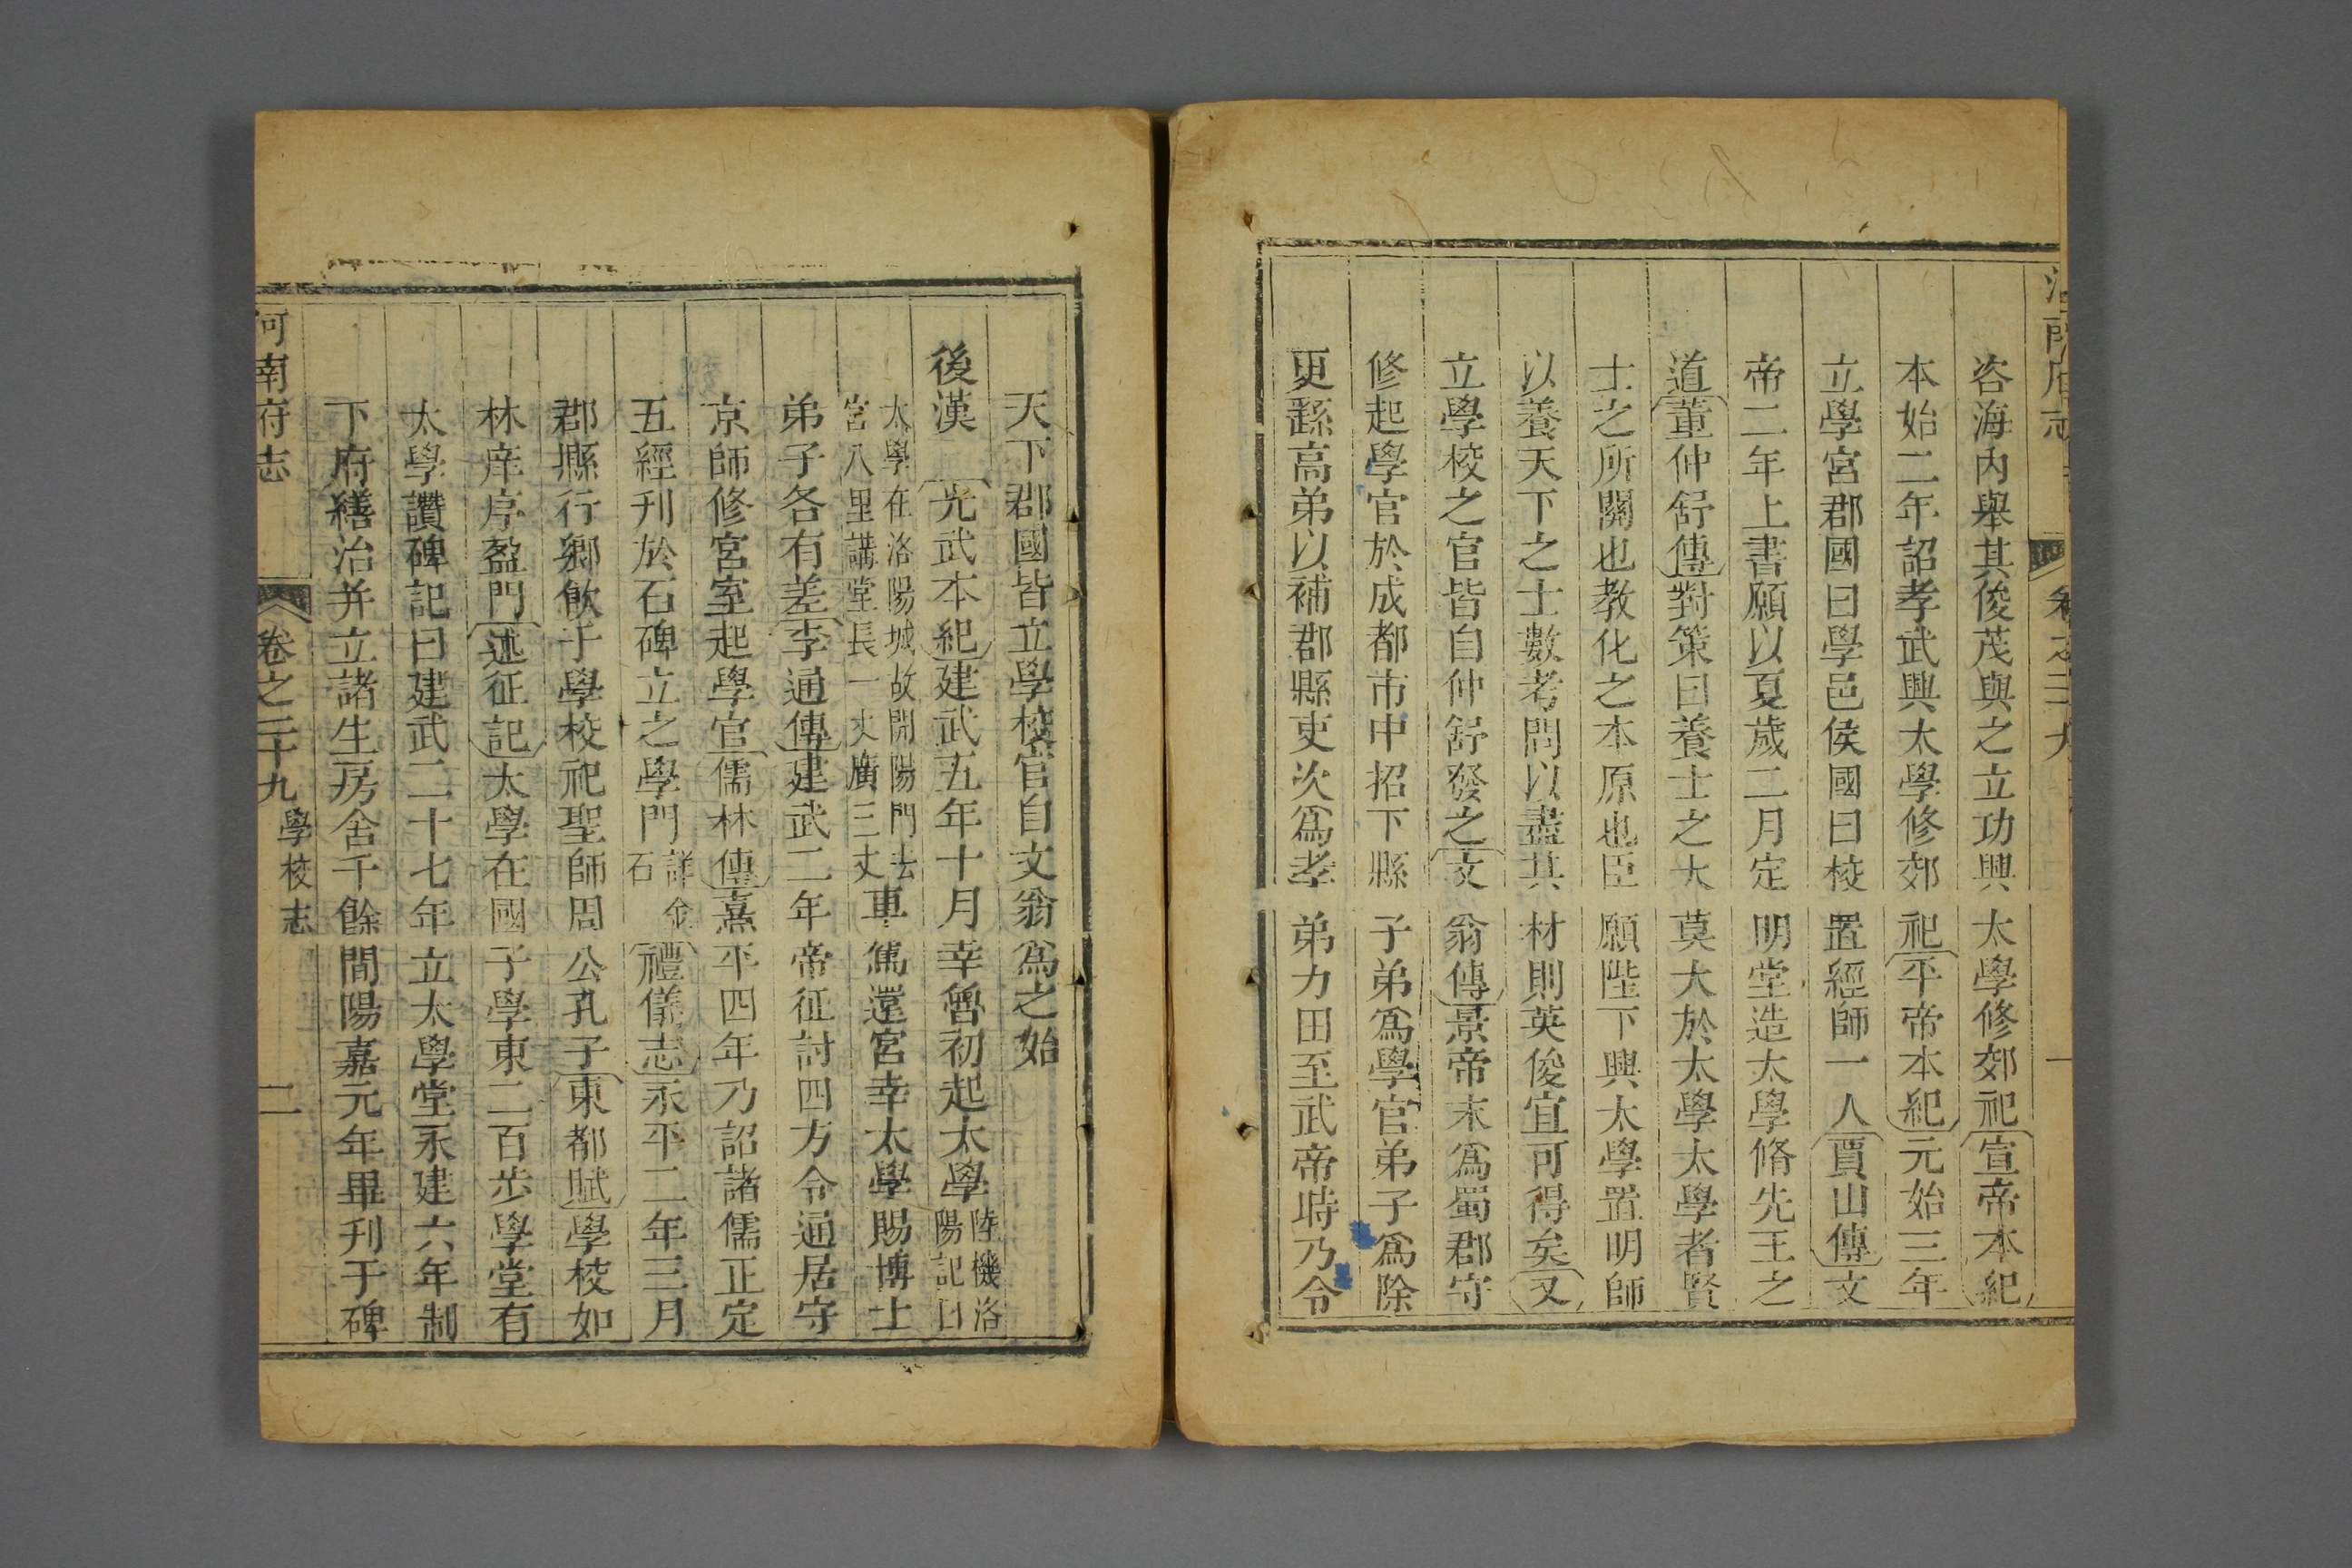 河南府志 卷之二十九 一
咨海內舉其俊茂與之立功興太學修郊祀宣帝本紀
本始二年詔孝武興太學修郊祀平帝本紀元始三年
立學宮郡國曰學邑侯國曰校置經師一人賈山傳文
帝二年上書願以夏歲二月定明堂造太學脩先王之
道董仲舒傳對策曰養士之大莫大於太學太學者賢
士之所關也教化之本原也臣願陛下興太學置明師
以養天下之士數考問以盡其材則英俊宜可得矣又
立學校之官皆自仲舒發之文翁傳景帝末爲蜀郡守
修起學官於成都市中招下縣子弟爲學官弟子爲除
更繇高弟以補郡縣吏次爲孝弟力田至武帝時乃令
天下郡國皆立學校官自文翁爲之始
後漢 光武本紀建武五年十月幸魯初起太學陸機洛陽記曰
太學在洛陽城故開陽門去宮八里講堂長一丈廣三丈車駕還宮幸太學賜博士
弟子各有差李通傳建武二年帝征討四方令通居守
京師修宮室起學官儒林傳熹平四年乃詔諸儒正定
五經刊於石碑立之學門詳金石禮儀志永平二年三月
郡縣行鄉飲于學校祀聖師周公孔子東都賦學校如
林庠序盈門述征記太學在國子學東二百步學堂有
太學讚碑記曰建武二十七年立太學堂永建六年制
下府繕治并立諸生房舍千餘間陽嘉元年畢刊于碑
河南府志 卷之二十九 學校志 二